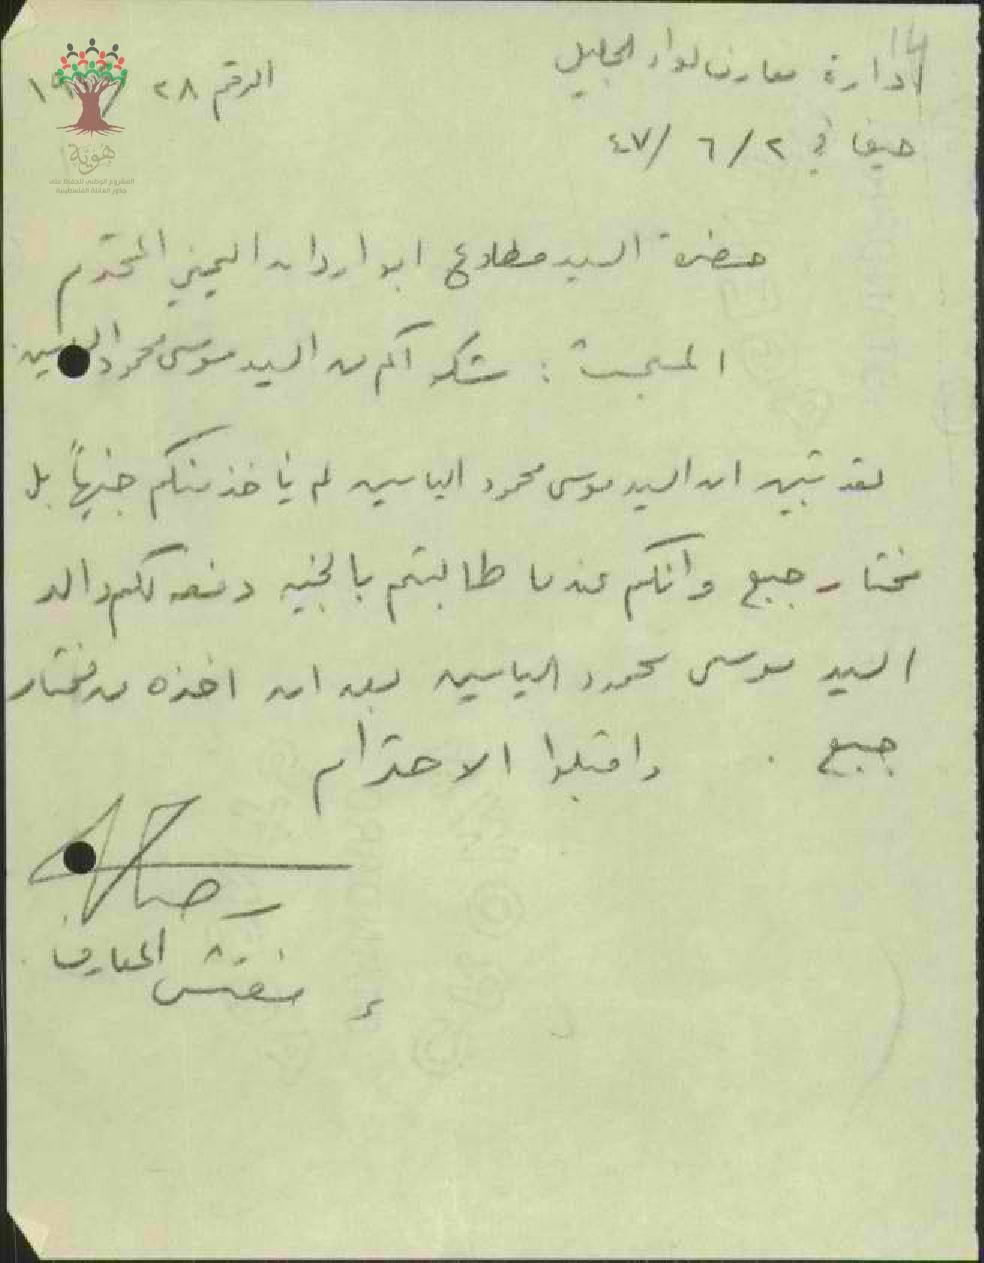 ادارة معارف لواء الجليل
الرقم ٢٨
حيفا في ٢ / ٦ / ٤٧
هوية
المشروع الوطني للحفاظ على
جذور العائلة الفلسطينية
حضرة السيد مطاوع ابو اردان اليمني المحترم
المبحث : شكواكم من السيد موسى محمود
لقد تبين ان السيد موسى محمود الياسين لم يأخذ منكم جنيهاً بل
مختار جبع وانكم عندما طالبتم بالجنيه دفعه لكم والد
السيد موسى محمود الياسين بعد ان اخذه من مختار
جبع . واقبلوا الاحترام
مفتش المعارف